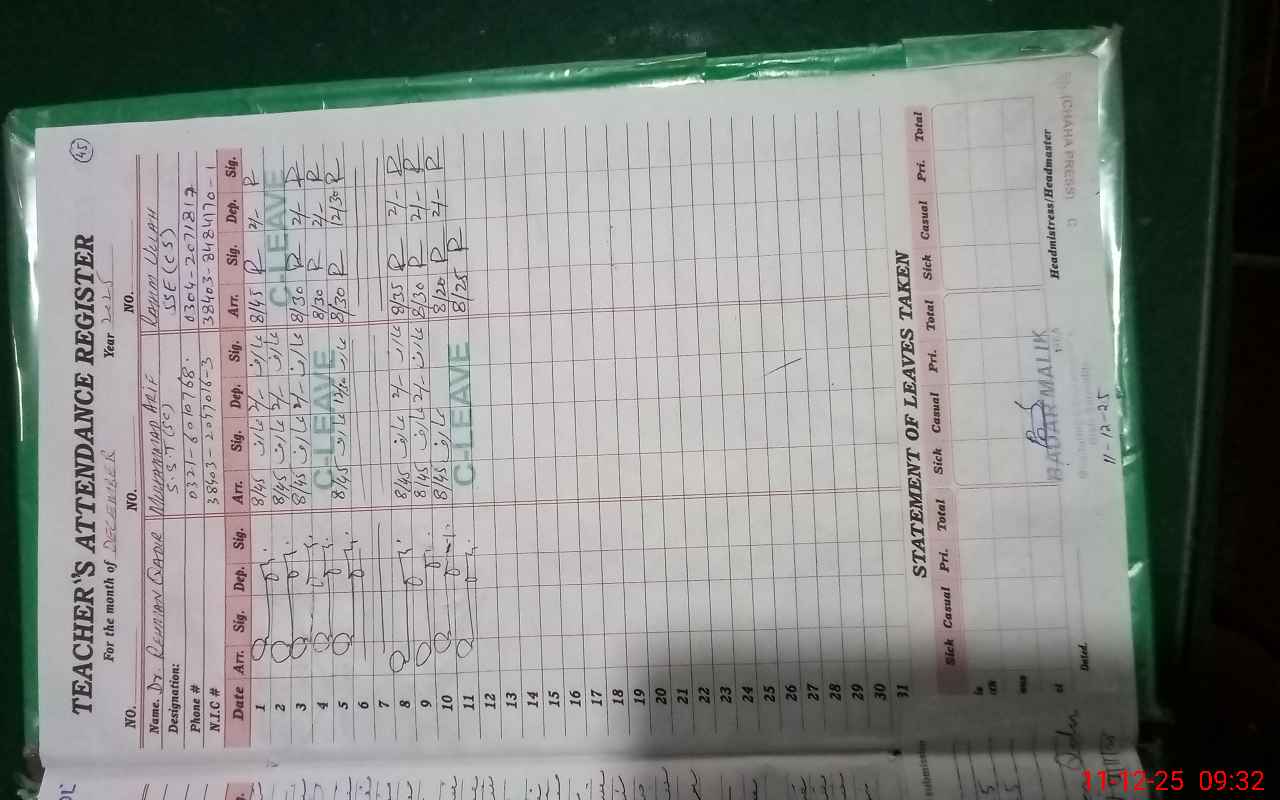 45
TEACHER'S ATTENDANCE REGISTER
For the month of DECEMBER Year 2025
NO. NO. NO.
Name. Dr. REHMAN QADIR MUHAMMAD ARIF RAHIM ULLAH
Designation: S.S.T (SC) SSE (CS)
Phone # 0321-6010768. 0304-2071817
N.I.C # 38403-2047016-3 38403-8484170-1
Date Arr. Sig. Dep. Sig. Arr. Sig. Dep. Sig. Arr. Sig. Dep. Sig.
1 8/45 عارف 2/- عارف 8/45 R 2/- R
2 8/45 عارف 2/- عارف C-LEAVE
3 8/45 عارف 2/- عارف 8/30 R 2/- R
4 C-LEAVE 8/30 R 2/- R
5 8/45 عارف 12/30 عارف 8/30 R 12/30 R
6
7
8 8/45 عارف 2/- عارف 8/35 R 2/- R
9 8/45 عارف 2/- عارف 8/30 R 2/- R
10 8/45 عارف 8/20 R 2/- R
11 C-LEAVE 8/25 R
12
13
14
15
16
17
18
19
20
21
22
23
24
25
26
27
28
29
30
31
STATEMENT OF LEAVES TAKEN
Sick Casual Pri. Total Sick Casual Pri. Total Sick Casual Pri. Total
BADAR MALIK
Dated. 11-12-25 Headmistress/Headmaster
(CHAHA PRESS)
submission
11-12-25 09:32